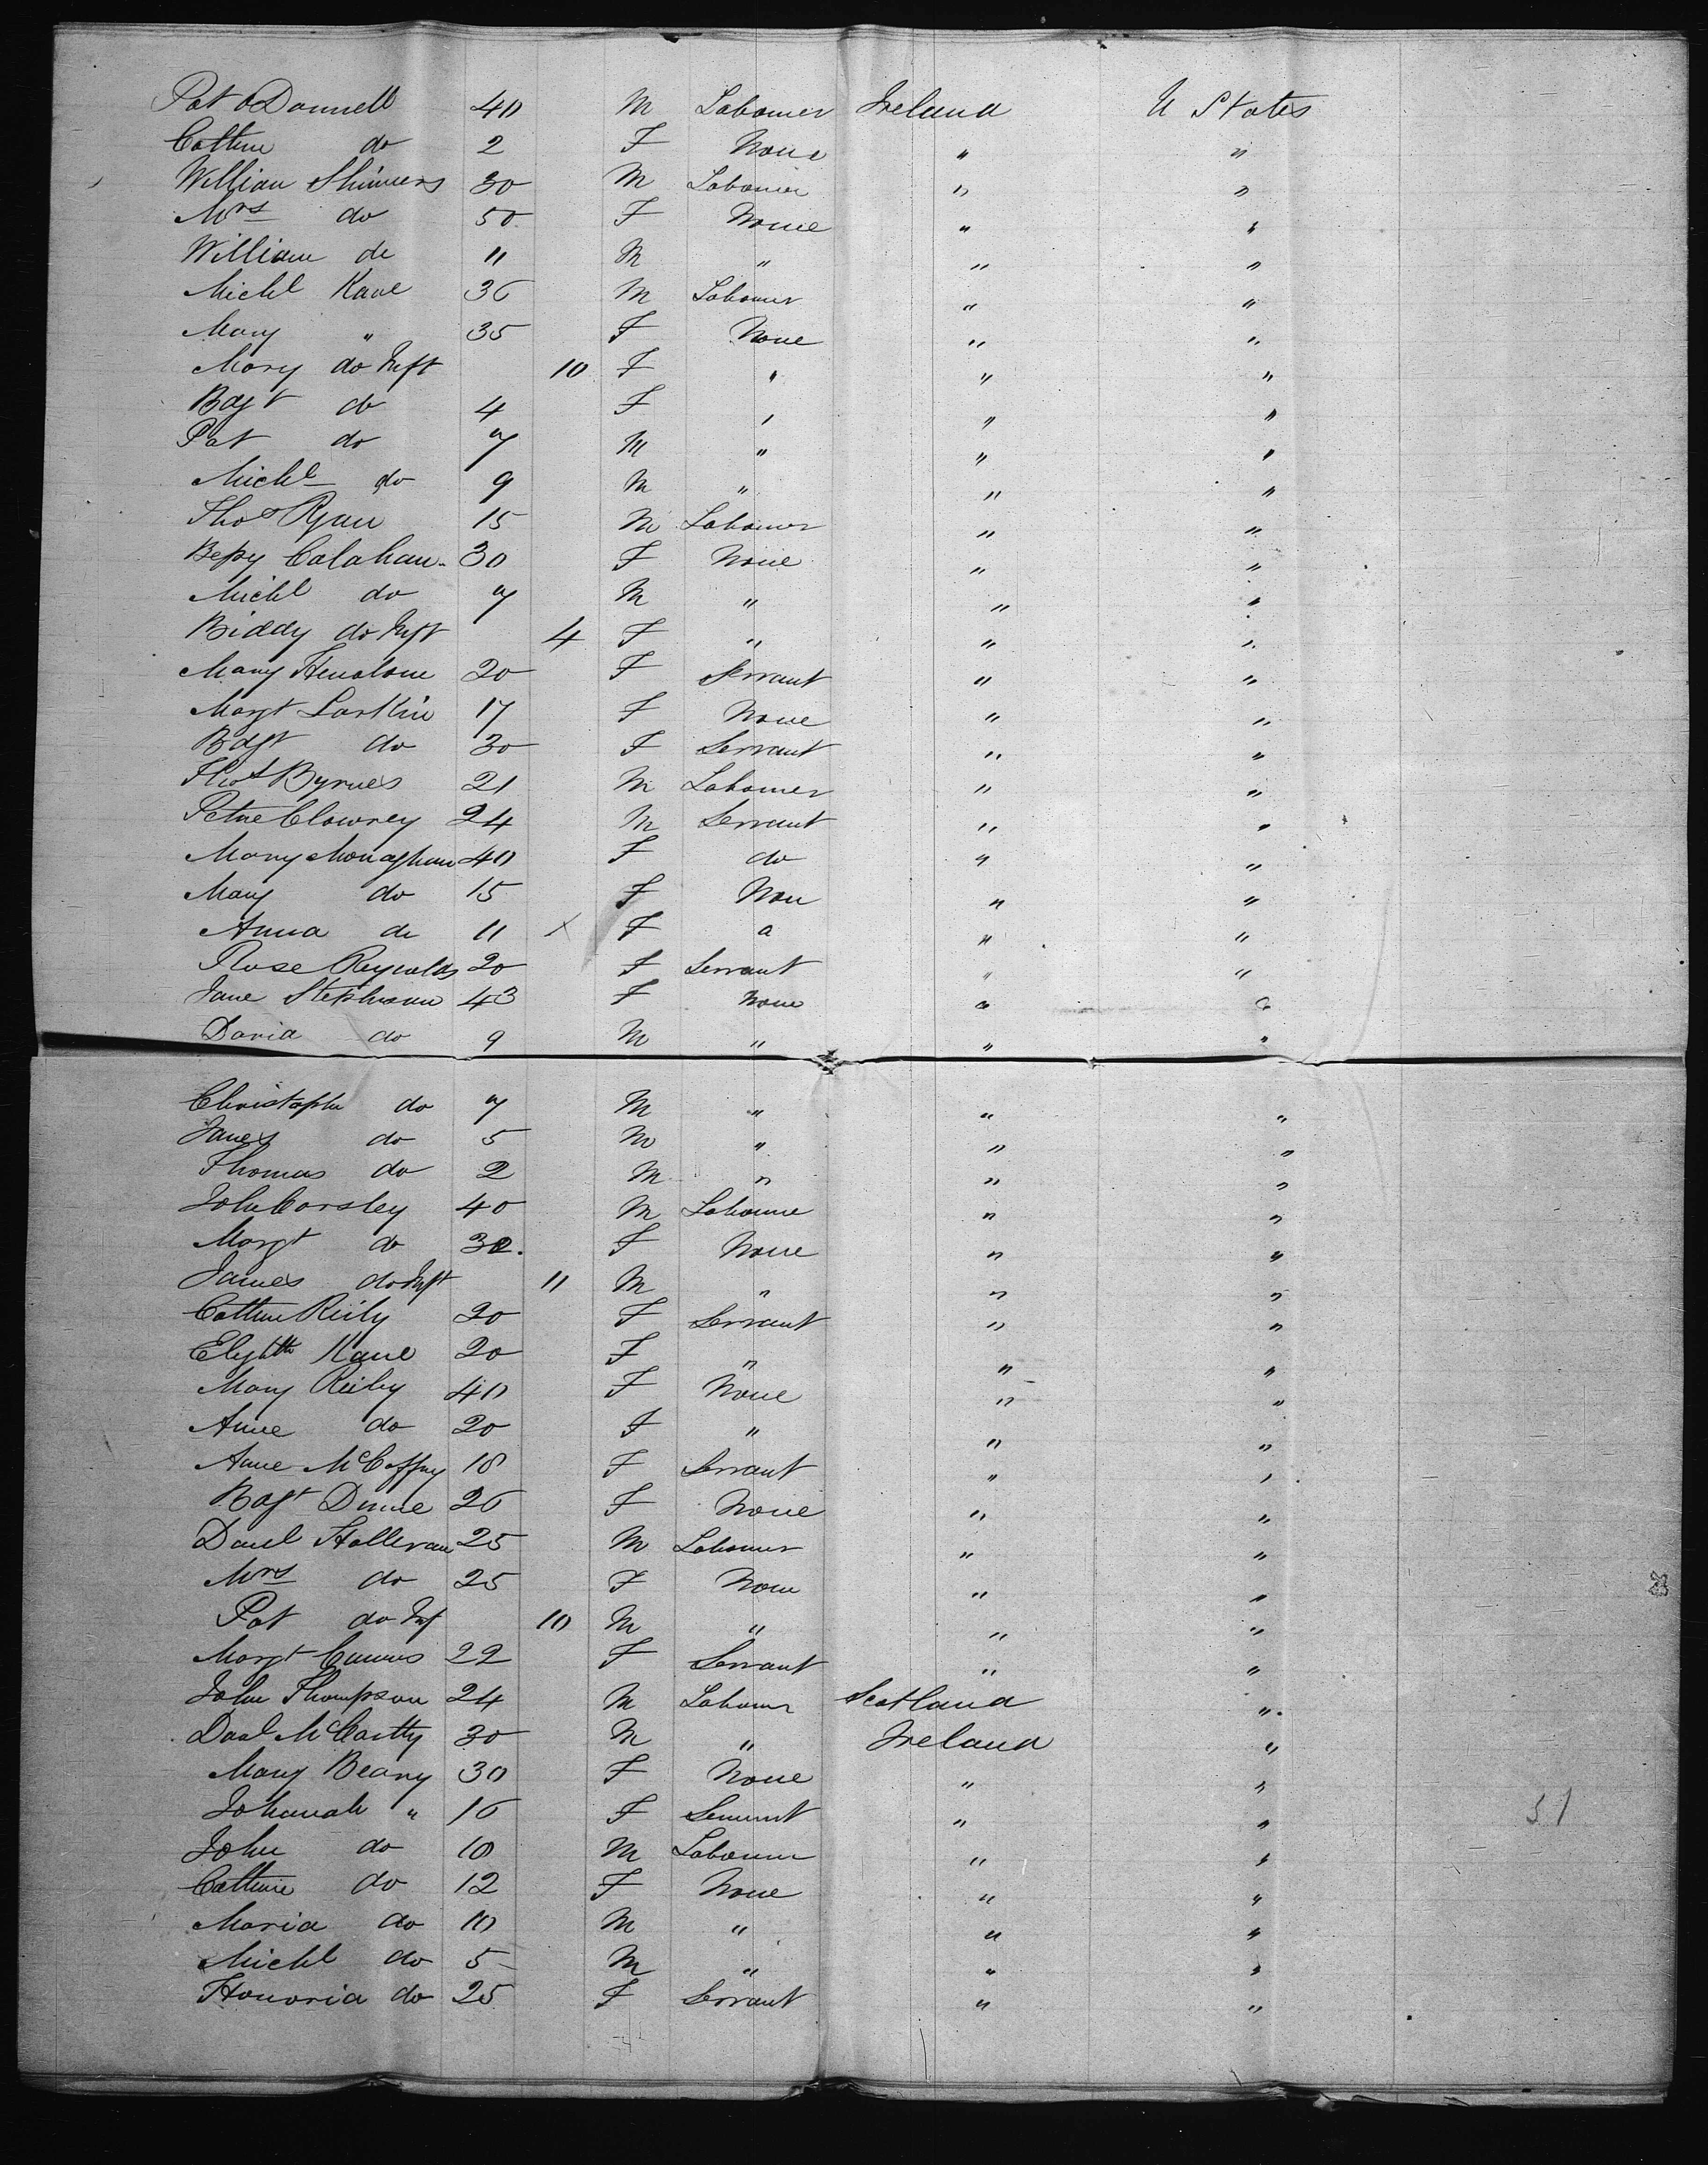 Pat O'Donnell 40 M Labourer Ireland U States
Cathne do 2 F None " "
William Shinners 30 M Labourer " "
Mrs do 50 F None " "
William do 11 M " " "
Michl Kane 36 M Labourer " "
Mary " 35 F None " "
Mary do Inft 10 F " " "
Bdgt do 4 F " " "
Pat do 7 M " " "
Michl do 9 M " " "
Thos Ryan 15 M Labourer " "
Bessy Calahan 30 F None " "
Michl do 7 M " " "
Biddy do Inft 4 F " " "
Mary 20 F Servant " "
Margt Larkin 17 F None " "
Bdgt do 30 F Servant " "
Thos Byrnes 21 M Labourer " "
Clowrey 24 M Servant " "
Mary Monaghan 40 F do " "
Mary do 15 F Non " "
Anna do 11 F " " "
Rose Reynolds 20 F Servant " "
Jane Stephenson 43 F None " "
David do 9 M " " "
Christopher do 7 M " " "
James do 5 M " " "
Thomas do 2 M " " "
John Corsley 40 M Labourer " "
Margt do 30 F None " "
James do Inft 11 M " " "
Cathne Reily 20 F Servant " "
Elizbth Kane 20 F " " "
Mary Reily 40 F None " "
Anne do 20 F " " "
Anne McCaffry 18 F Servant " "
Bdgt Dunne 26 F None " "
Danl Halleran 25 M Labourer " "
Mrs do 25 F None " "
Pat do Inf 10 M " " "
Margt 22 F Servant " "
John Thompson 24 M Labourer Scotland "
Danl McCartty 30 M " Ireland "
Mary Beary 30 F None " "
Johanah " 16 F Servant " "
John do 10 M Labourer " "
Cathne do 12 F None " "
Maria do 10 M " " "
Michl do 5 M " " "
Honoria do 25 F Servant " "
51